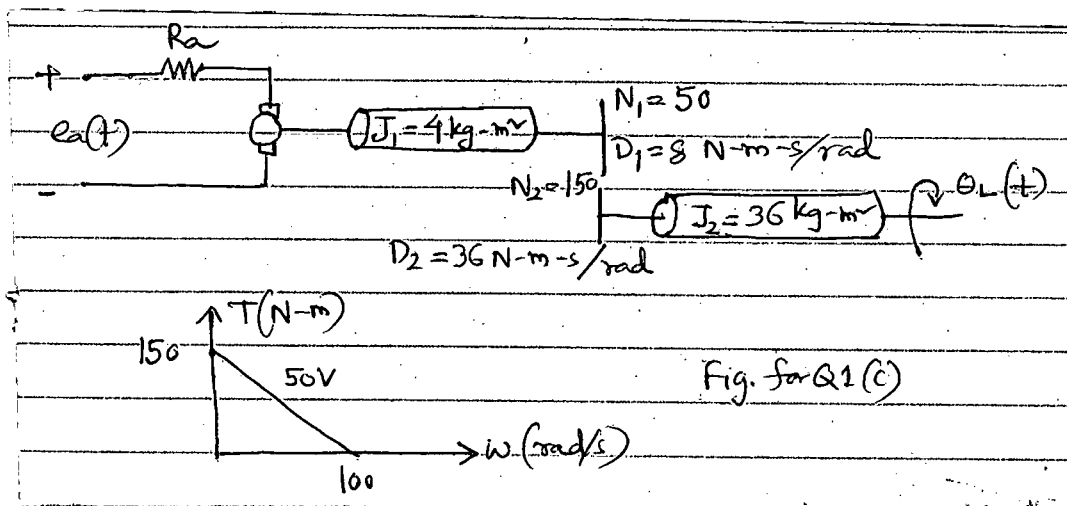 Ra
+
N₁ = 50
ea(t)
J₁ = 4 kg-m²
D₁ = 8 N-m-s/rad
-
N₂ = 150
θL(t)
J₂ = 36 kg-m²
D₂ = 36 N-m-s/rad
T(N-m)
150
50V
Fig. for Q1(c)
ω (rad/s)
100